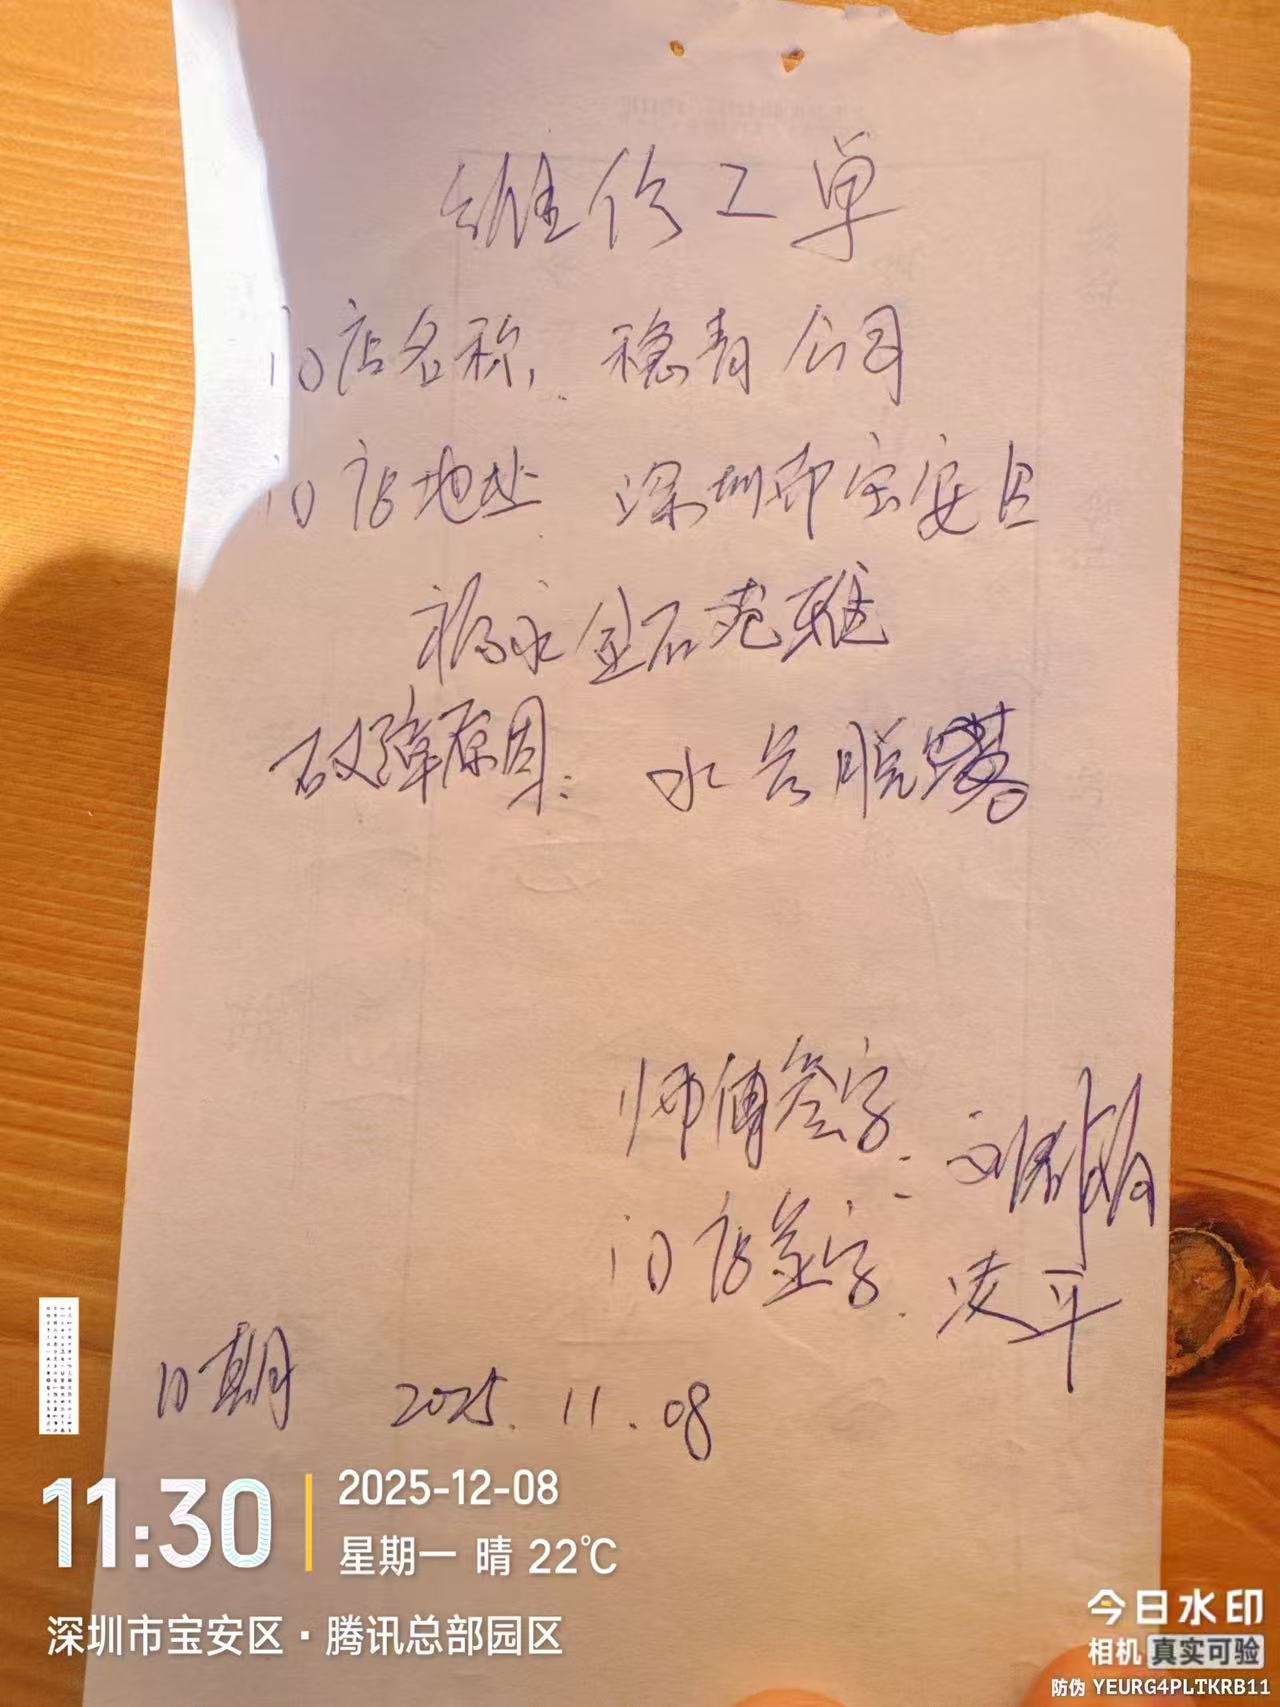 维修工单
门店名称: 稳青公司
门店地址 深圳市宝安区
福永金石苑
故障原因: 水管脱落
师傅签字:
门店签字: 凌平
日期 2025.11.08
11:30
2025-12-08
星期一 晴 22℃
深圳市宝安区·腾讯总部园区
今日水印
相机 真实可验
防伪 YEURG4PLTKRB11